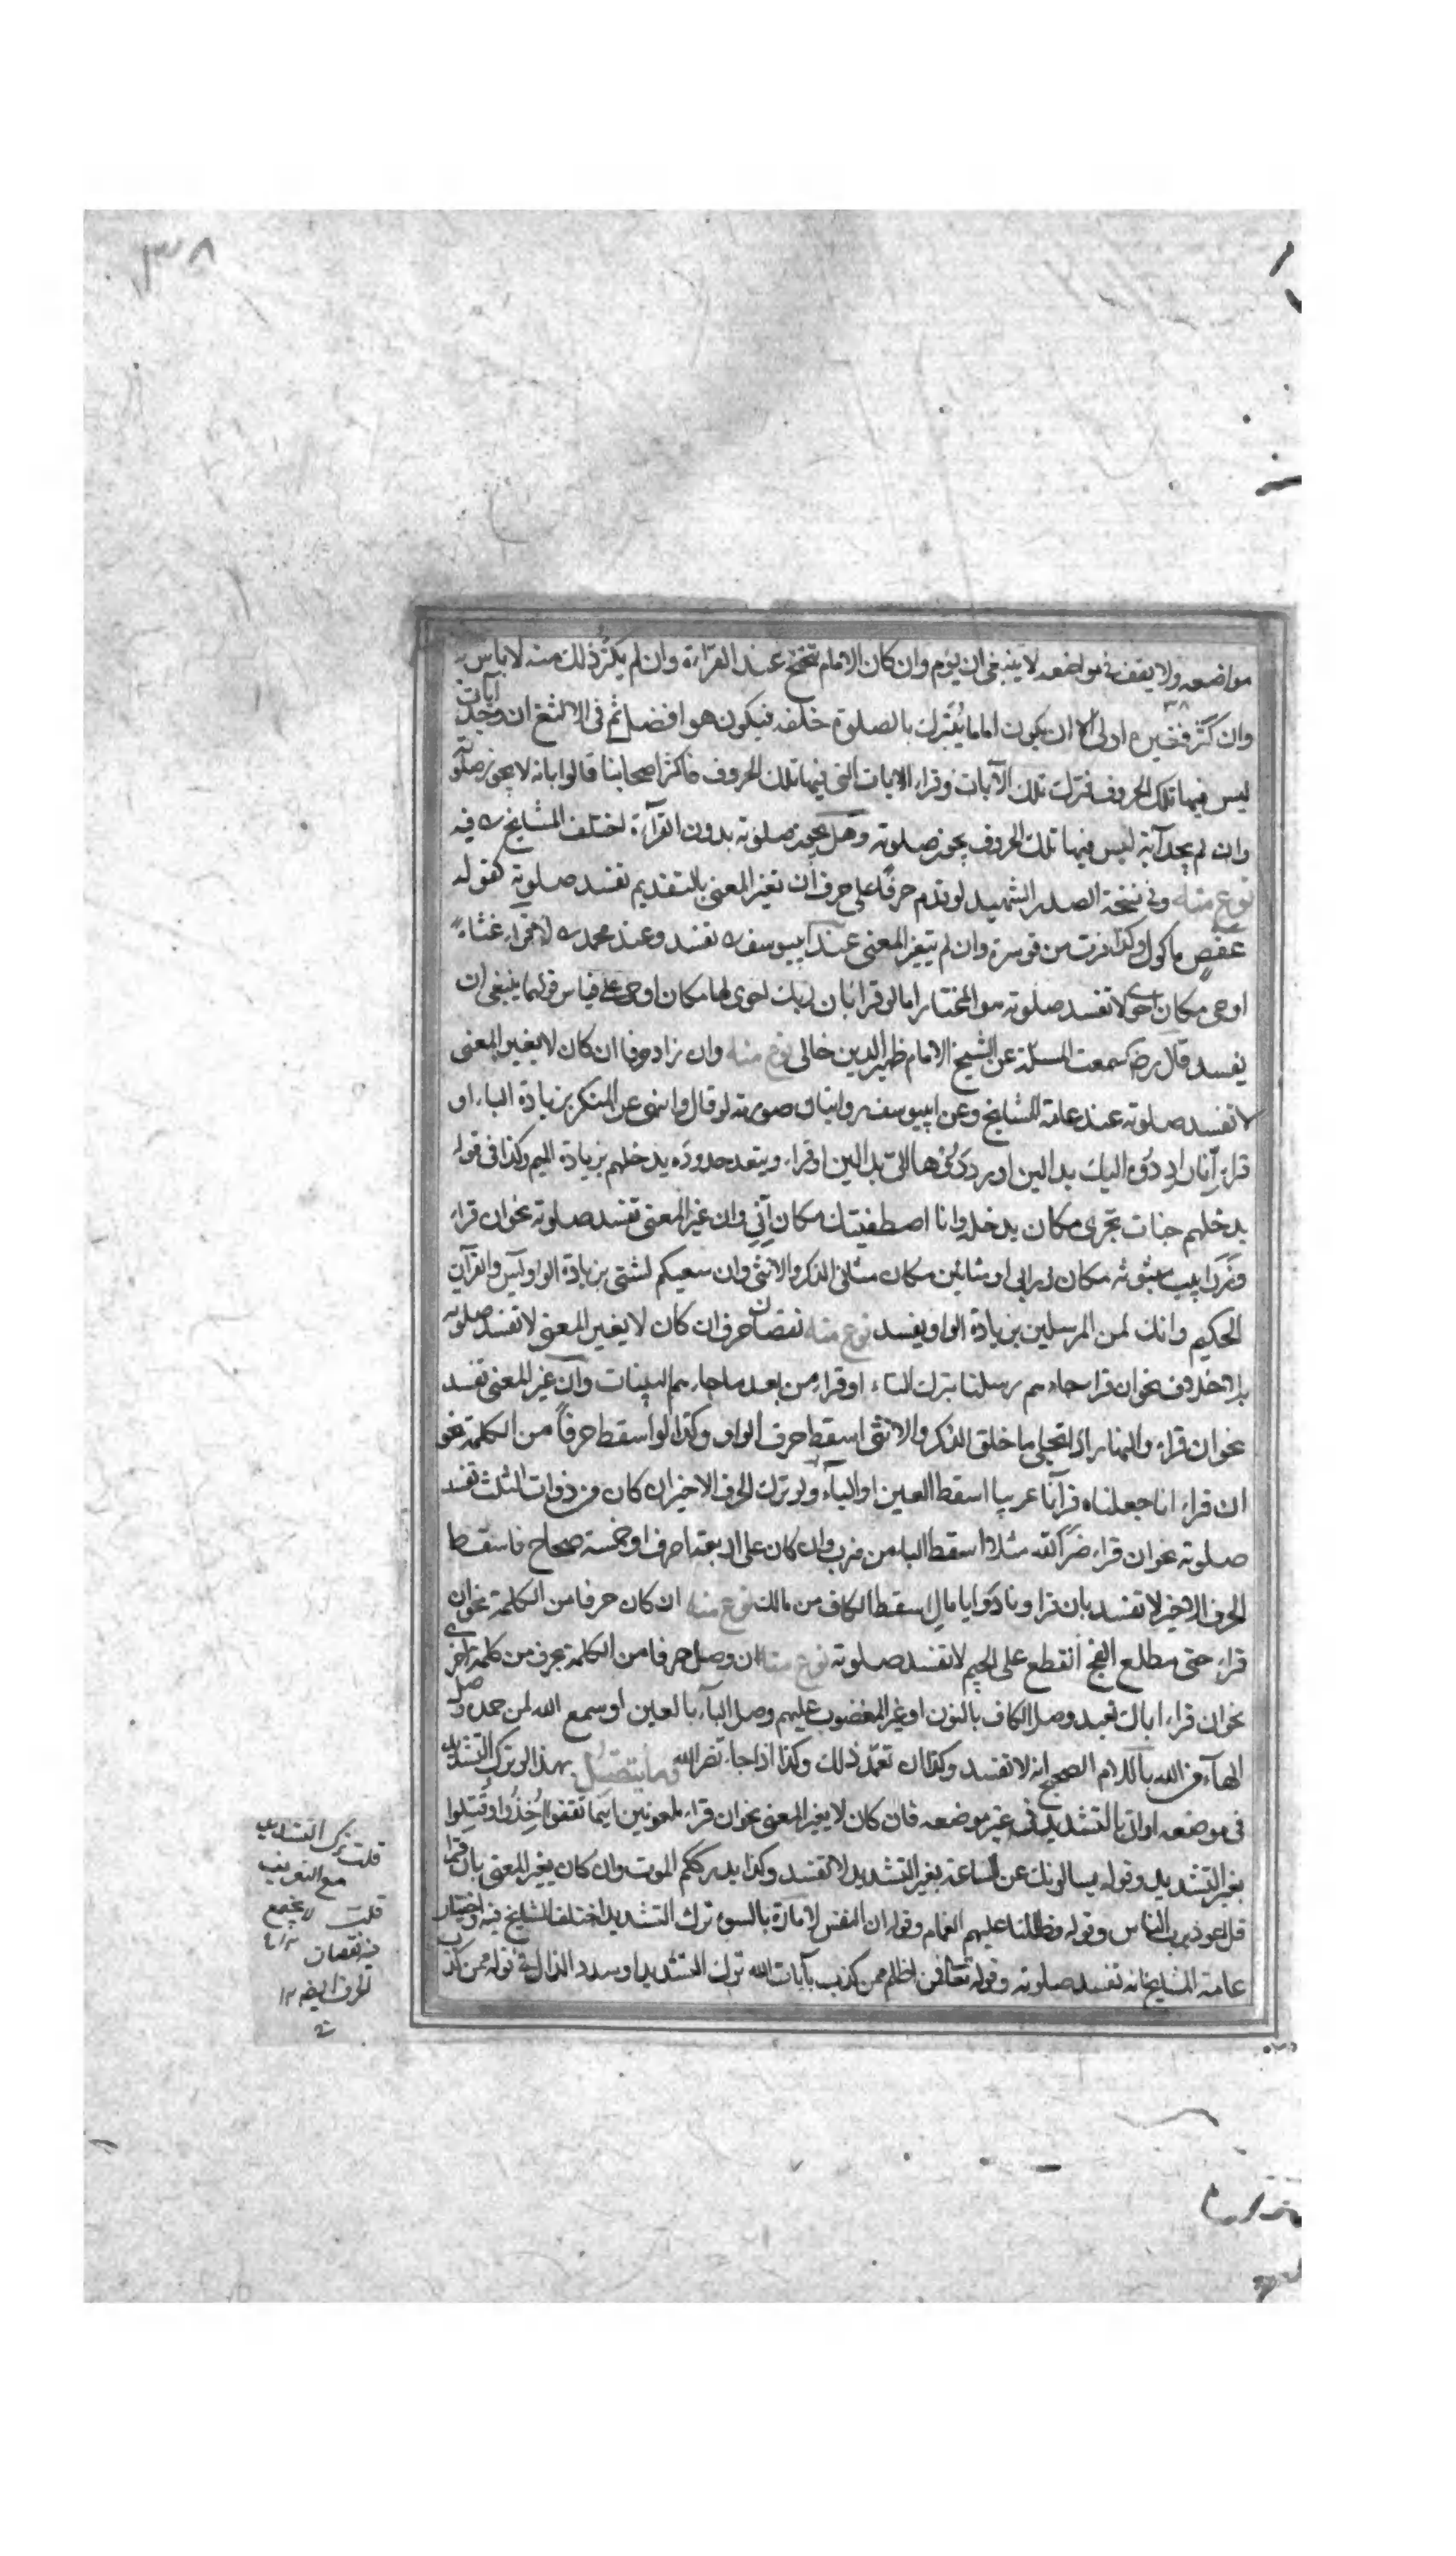 ٣٨
مواضعه ولا يقف فى مواضعه لا ينبغى ان يؤم وان كان الامام تنحنح عند القراءة وان لم يكثر ذلك منه لا باس به
وان كثر فغيره اولى الا ان يكون اماما يتبرك بالصلوة خلفه فيكون هو افضل ثم فى الالثغ ان وجد آيات
ليس فيها تلك الحروف فترك تلك الآيات وقراء الايات التى فيها تلك الحروف فاكثر اصحابنا قالوا بانه لا يجوز صلوته
وان لم يجد آية ليس فيها تلك الحروف يجوز صلوته وهل يجوز صلوته بدون القرآءة اختلف المشايخ فيه
نوع منه وفى نسخة الصدر الشهيد لو قدم حرفا على حرف ان تغير المعنى بالتقديم تفسد صلوته كقوله
عفص ماكول وكذا فرت من قوسرة وان لم يتغير المعنى عند ابيوسف تفسد وعند محمد لا فى غثاء
اوحى مكان احوى لا تفسد صلوته هو المختار اما لو قرا بان ربك احوى لها مكان اوحى على قياس قولهما ينبغى ان
يفسد قال سمعت المسئلة عن الشيخ الامام ظهير الدين خالى نوع منه وان زاد حرفا ان كان لا يغير المعنى
لا تفسد صلوته عند عامة المشايخ وعن ابيوسف روايتان صورته لو قال وانهى عن المنكر بزيادة الياء او
قراء انا رادوه اليك بدالين او ردوها الى بدالين او قراء ويتعد حدوده يدخلهم بزيادة الميم وكذا فى قوله
يدخلهم جنات تجرى مكان يدخله وانا اصطفيتك مكان آنى وان غير المعنى تفسد صلوته نحو ان قراء
وزرابيب مبثوثة مكان زرابى او مثانين مكان مثانى الذكر والانثى وان سعيكم لشتى بزيادة الواو يس والقرآن
الحكيم وانك لمن المرسلين بزيادة الواو يفسد نوع منه نقصان حرف ان كان لا يغير المعنى لا تفسد صلوته
بلا خلاف نحو ان قرا جاءهم رسلنا بترك التاء او قراء من بعد ما جاءهم البينات وان غير المعنى تفسد
نحو ان قراء والنهار اذا تجلى ما خلق الذكر والانثى اسقط حرف الواو وكذا لو اسقط حرفا من الكلمة نحو
ان قراء انا جعلناه قرآنا عربيا اسقط العين او الباء ولو ترك الحرف الاخير ان كان من ذوات الثلث تفسد
صلوته نحو ان قراء ضر الله مثلا اسقط الباء من ضرب وان كان على اربعة احرف او خمسة صحاح فاسقط
الحرف الاخير لا تفسد بان قرا ونادوا يا مال اسقط الكاف من مالك نوع منه ان كان حرفا من الكلمة نحو ان
قراء حتى مطلع الفج انقطع على الجيم لا تفسد صلوته نوع منه ان وصل حرفا من الكلمة بحرف من كلمة اخرى
نحو ان قراء اياك نعبد وصل الكاف بالنون او غير المغضوب عليهم وصل الباء بالعين او سمع الله لمن حمده وصل
الهاء من الله باللام الصحيح انه لا تفسد وكذا ان تعمد ذلك وكذا اذا جاء نصر الله وما يتصل بهذا لو ترك التشديد
فى موضعه او اتى بالتشديد فى غير موضعه فان كان لا يغير المعنى نحو ان قراء ملعونين اينما ثقفوا اخذوا وقتلوا
بغير التشديد وقوله يسالونك عن الساعة بغير التشديد لا تفسد وكذا يدرككم الموت وان كان يغير المعنى بان قرا
قل اعوذ برب الناس وقوله وظللنا عليهم الغمام وقوله ان النفس لامارة بالسوء ترك التشديد اختلف المشايخ فيه واختيار
عامة المشايخ انه تفسد صلوته وقوله تعالى فمن اظلم ممن كذب بآيات الله ترك التشديد او شدد الذال فى قوله ممن كذب
قلت ترك التشديد
مع التعريف
قلت لا يجمع
فيه نقصان
الحرف ايضا ١٢